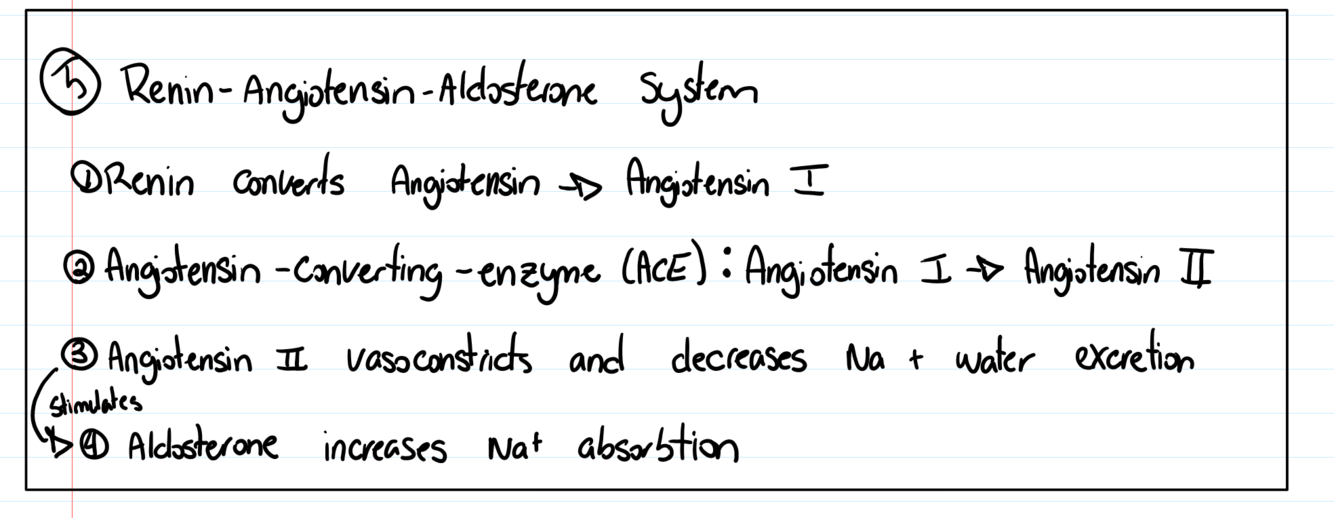 5 Renin-Angiotensin-Aldosterone System
① Renin converts Angiotensin → Angiotensin I
② Angiotensin-Converting-enzyme (ACE): Angiotensin I → Angiotensin II
③ Angiotensin II vasoconstricts and decreases Na + water excretion
stimulates
④ Aldosterone increases Na+ absorbtion